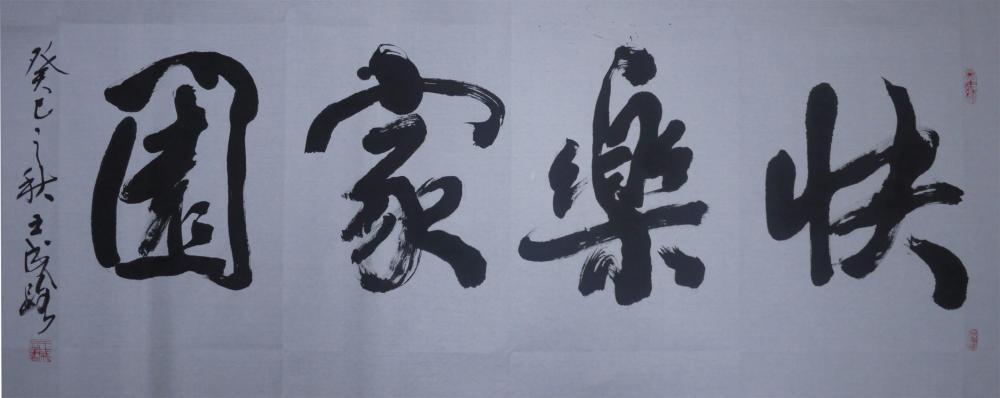 快樂家園
癸巳之秋王成